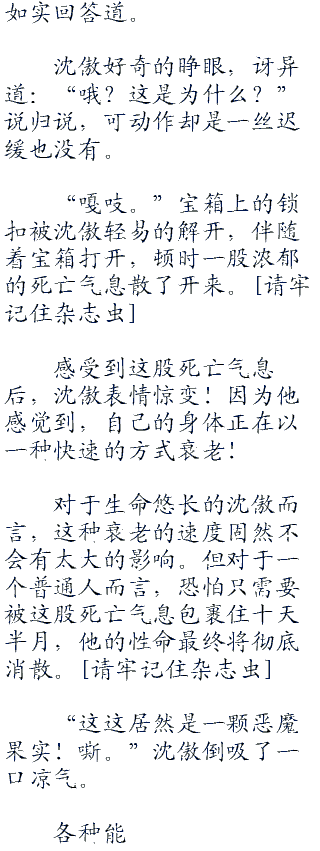 如实回答道。
沈傲好奇的睁眼，讶异
道：“哦？这是为什么？”
说归说，可动作却是一丝迟
缓也没有。
“嘎吱。”宝箱上的锁
扣被沈傲轻易的解开，伴随
着宝箱打开，顿时一股浓郁
的死亡气息散了开来。[请牢
记住杂志虫]
感受到这股死亡气息
后，沈傲表情惊变！因为他
感觉到，自己的身体正在以
一种快速的方式衰老！
对于生命悠长的沈傲而
言，这种衰老的速度固然不
会有太大的影响。但对于一
个普通人而言，恐怕只需要
被这股死亡气息包裹住十天
半月，他的性命最终将彻底
消散。[请牢记住杂志虫]
“这这居然是一颗恶魔
果实！嘶。”沈傲倒吸了一
口凉气。
各种能